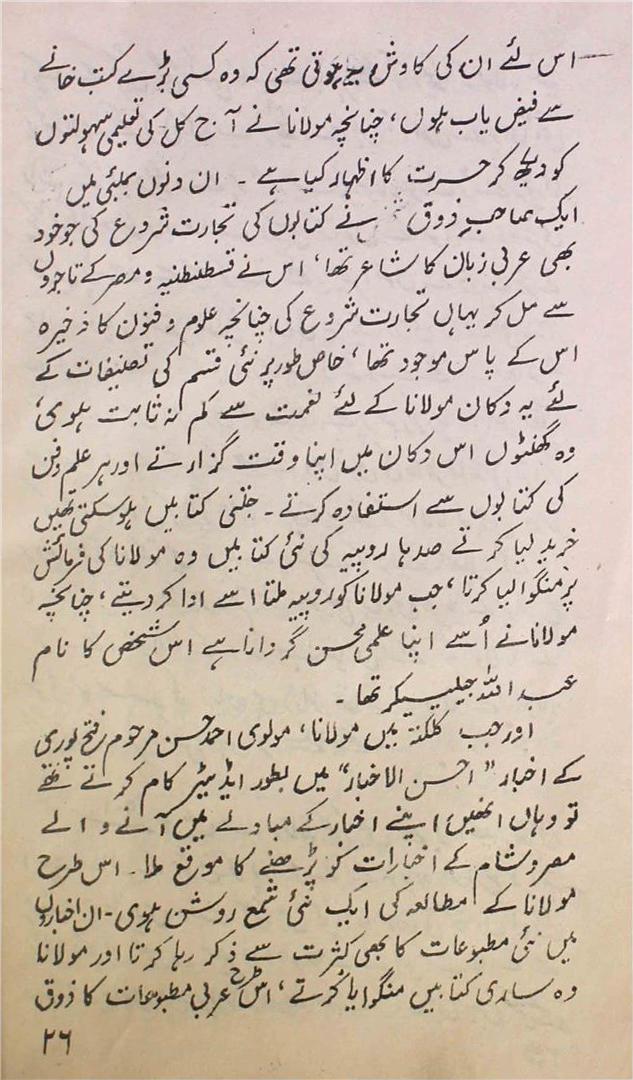 اس لئے ان کی کاوش یہ ہوتی تھی کہ وہ کسی بڑے کتب خانے
سے فیض یاب ہوں، چنانچہ مولانا نے آج کل کی تعلیمی سہولتوں
کو دیکھ کر حسرت کا اظہار کیا ہے ۔ ان دنوں بمبئی میں
ایک صاحبِ ذوق نے کتابوں کی تجارت شروع کی جو خود
بھی عربی زبان کا شاعر تھا، اس نے قسطنطنیہ و مصر کے تاجروں
سے مل کر یہاں تجارت شروع کی چنانچہ علوم و فنون کا ذخیرہ
اس کے پاس موجود تھا، خاص طور پر نئی قسم کی تصنیفات کے
لئے یہ دکان مولانا کے لئے نعمت سے کم نہ ثابت ہوی،
وہ گھنٹوں اس دکان میں اپنا وقت گزارتے اور ہر علم و فن
کی کتابوں سے استفادہ کرتے ۔ جتنی کتابیں ہو سکتی تھیں
خرید لیا کرتے صدہا روپیہ کی نئی کتابیں وہ مولانا کی فرمائش
پر منگوا لیا کرتا، جب مولانا کو روپیہ ملتا اسے ادا کر دیتے، چنانچہ
مولانا نے اُسے اپنا علمی محسن گردانا ہے اس شخص کا نام
عبد اللہ جیلیکر تھا ۔
اور جب کلکتہ میں مولانا، مولوی احمد حسن مرحوم فتح پوری
کے اخبار "احسن الاخبار" میں بطور ایڈیٹر کام کرتے تھے
تو وہاں انھیں اپنے اخبار کے مبادلے میں آنے والے
مصر و شام کے اخبارات کو پڑھنے کا موقع ملا ۔ اس طرح
مولانا کے مطالعہ کی ایک نئی شمع روشن ہوی ۔ ان اخباروں
میں نئی مطبوعات کا بھی کثرت سے ذکر رہا کرتا اور مولانا
وہ ساری کتابیں منگوایا کرتے، اس طرح عربی مطبوعات کا ذوق
۲۶